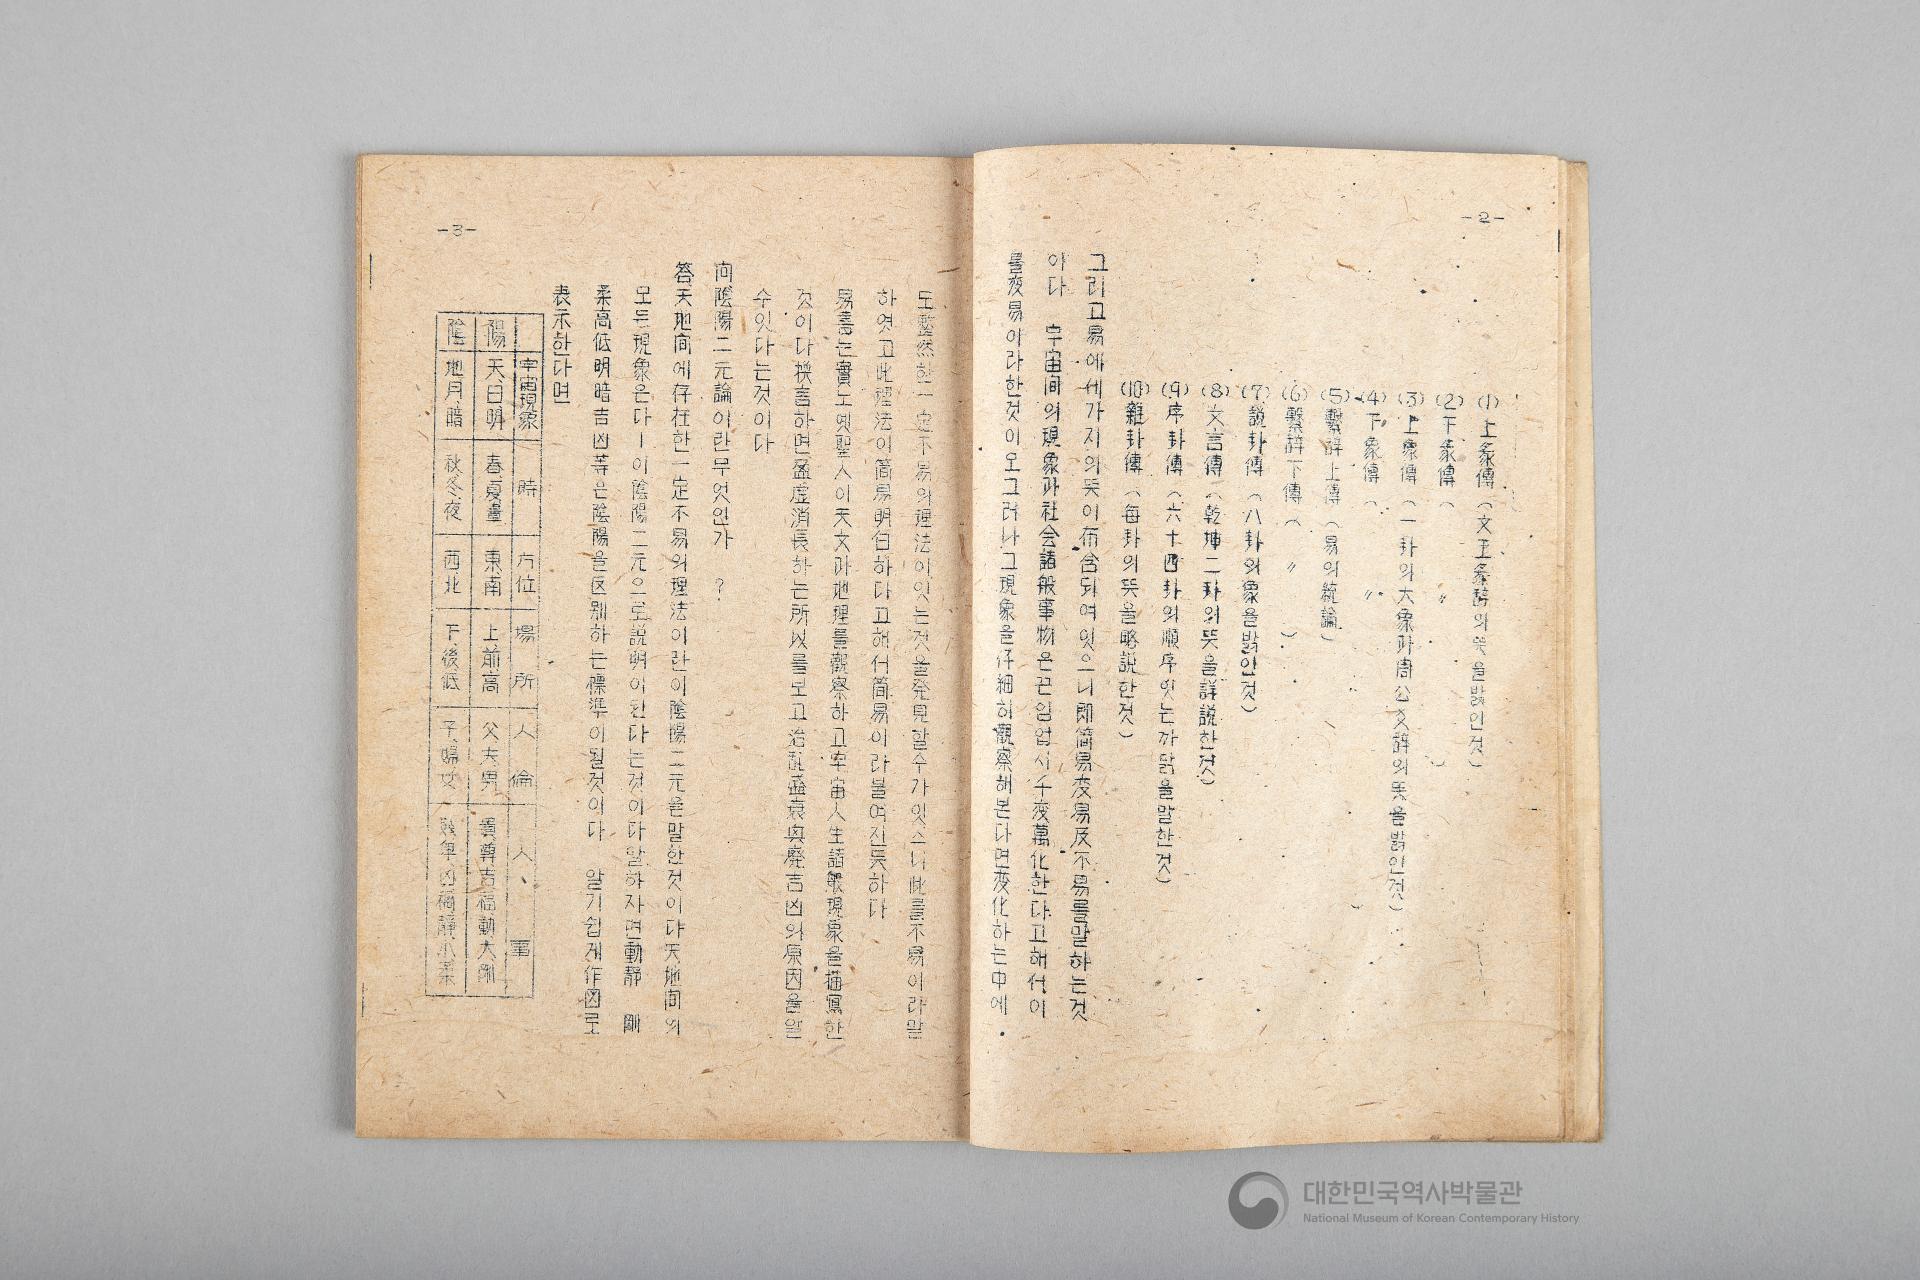 -2-
(1) 上彖傳 (文王彖辭의뜻을밝인것)
(2) 下彖傳 ( 〃 )
(3) 上象傳 (一卦의大象과周公爻辞의뜻을밝인것)
(4) 下象傳 ( 〃 )
(5) 繫辞上傳 (易의統論)
(6) 繫辞下傳 ( 〃 )
(7) 説卦傳 (八卦의象을밝인것)
(8) 文言傳 (乾坤二卦의뜻을詳説한것)
(9) 序卦傳 (六十四卦의順序잇는까닭을말한것)
(10) 雜卦傳 (每卦의뜻을略説한것)
그리고易에세가지의뜻이布含되여잇으니即簡易変易及不易를말하는것
이다 宇宙间의現象과社会諸般事物은끈임업시千変萬化한다고해서이
를変易이라한것이오그러나그現象을仔細히觀察해본다면変化하는中에
-3-
도整然한一定不易의理法이잇는것을発見할수가잇스니此를不易이라말
하엿고此理法이簡易明白하다고해서簡易이라불여진듯하다
易書는實노옛聖人이天文과地理를觀察하고宇宙人生諸般現象을描寫한
것이다換言하면盈虛消長하는所以를보고治乱盛衰興廃吉凶의原因을알
수잇다는것이다
问陰陽二元論이란무엇인가 ?
答天地间에存在한一定不易의理法이란이陰陽二元을말한것이다天地间의
모든現象은다ㅣ이陰陽二元으로説明이된다는것이다말하자면動静 剛
柔高低明暗吉凶等은陰陽을区别하는標準이될것이다 알기쉽게作図로
表示한다면
宇宙現象 時 方位 場所 人倫 人、事
陽 天日明 春夏晝 東南 上前高 父夫男 貴尊吉福動大剛
陰 地月暗 秋冬夜 西北 下後低 子婦女 年凶禍静小柔
대한민국역사박물관
National Museum of Korean Contemporary History